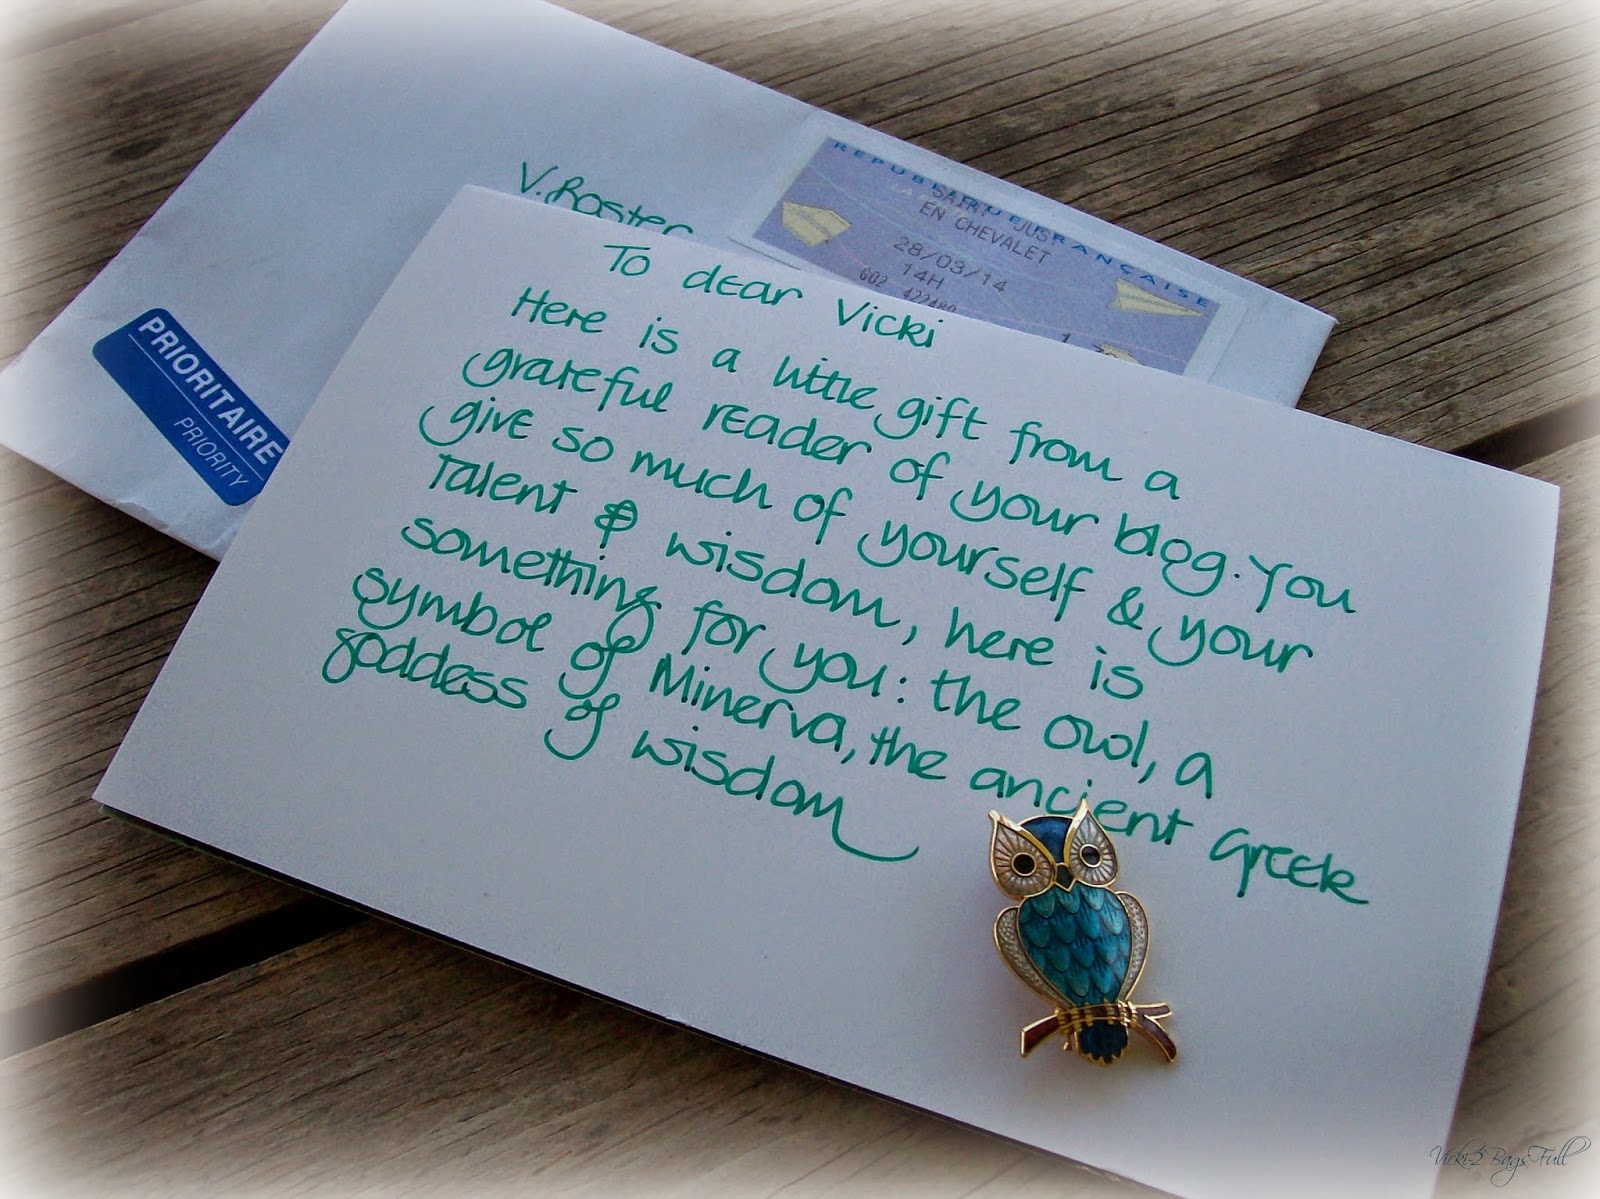 V. Roster
REPUBLIQUE FRANÇAISE
SAINT JUST
EN CHEVALET
28/03/14
14H
G02 422480
1
PRIORITAIRE
PRIORITY
To dear Vicki
Here is a little gift from a
grateful reader of your blog. You
give so much of yourself & your
talent & wisdom, here is
something for you: the owl, a
symbol of Minerva, the ancient Greek
goddess of wisdom
Vicki-2 Bags Full